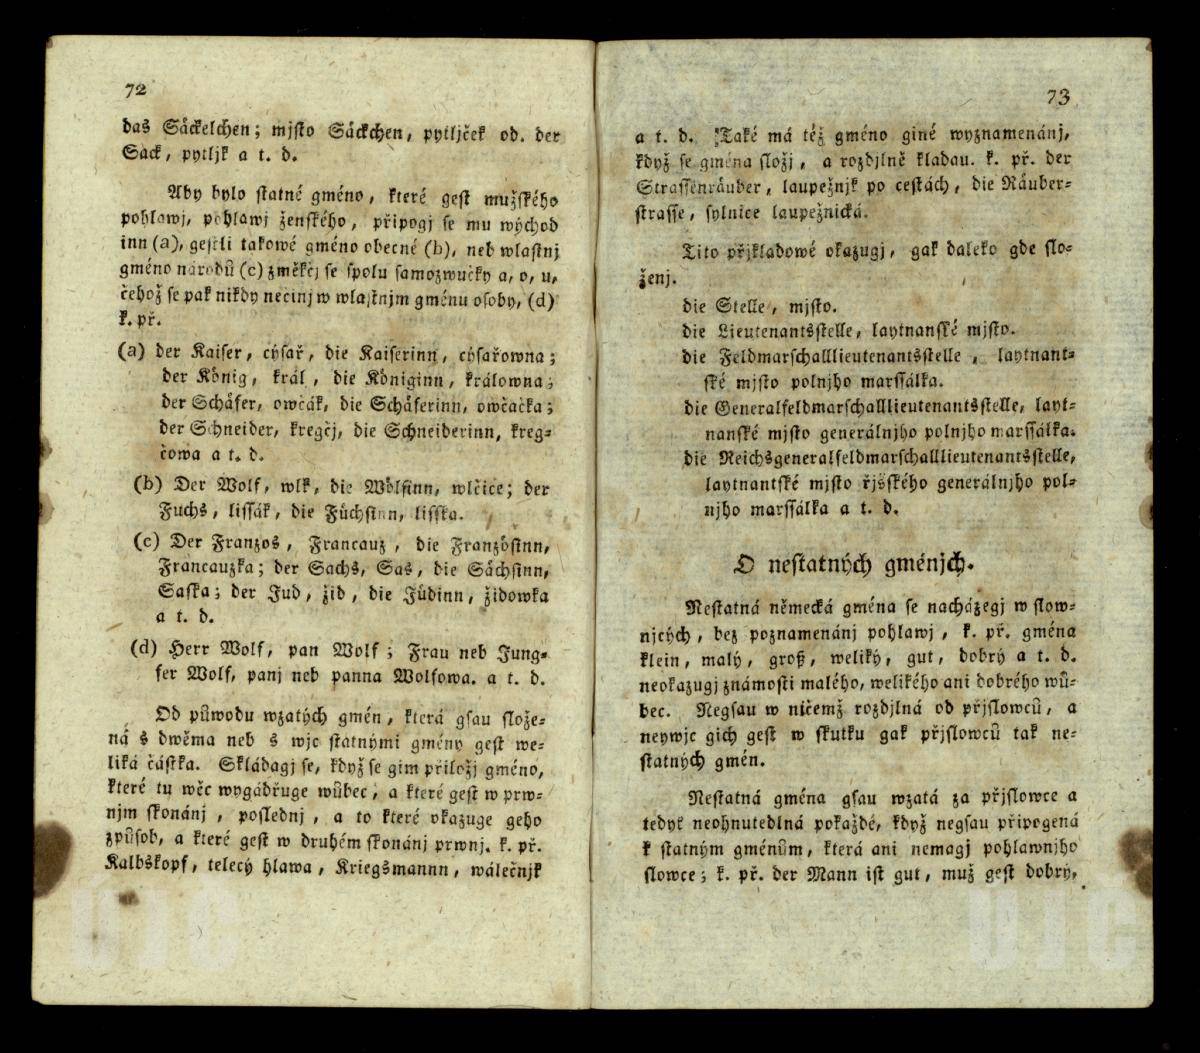 72
das Säckelchen; mjsto Säckchen, pytljček od. der
Sack, pytljk a t. d.
Aby bylo statné gméno, které gest mužského
pohlawj, pohlawj ženského, připogj se mu wýchod
inn (a), gestli takowé gméno obecné (b), neb wlastnj
gméno národů (c) změkčj se spolu samozwučky a, o, u,
čehož se pak nikdy nečinj w wlastnjm gménu osoby, (d)
k. př.
(a) der Kaiser, cýsař, die Kaiserinn, cýsařowna;
der König, král, die Königinn, králowna;
der Schäfer, owčák, die Schäferinn, owčačka;
der Schneider, kregčj, die Schneiderinn, kreg-
čowa a t. d.
(b) Der Wolf, wlk, die Wölfinn, wlčice; der
Fuchs, lissák, die Füchsinn, lisska.
(c) Der Franzos, Francauz, die Französinn,
Francauzka; der Sachs, Sas, die Sächsinn,
Saska; der Jud, žid, die Jüdinn, židowka
a t. d.
(d) Herr Wolf, pan Wolf; Frau neb Jung-
fer Wolf, panj neb panna Wolfowa. a t. d.
Od půwodu wzatých gmén, která gsau slože-
ná s dwěma neb s wjc statnými gmény gest we-
liká částka. Skládagj se, když se gim přiložj gméno,
které tu wěc wygádřuge wůbec, a které gest w prw-
njm skonánj, poslednj, a to které okazuge geho
způsob, a které gest w druhém skonánj prwnj. k. př.
Kalbskopf, telecý hlawa, Kriegsmannn, wálečnjk
73
a t. d. Také má též gméno giné wyznamenánj,
když se gména složj, a rozdjlně kladau. k. př. der
Strassenräuber, laupežnjk po cestách, die Räuber-
strasse, sylnice laupežnická.
Tito přjkladowé okazugj, gak daleko gde slo-
ženj.
die Stelle, mjsto.
die Lieutenantsstelle, laytnanské mjsto.
die Feldmarschalllieutenantsstelle, laytnant-
ské mjsto polnjho marssálka.
die Generalfeldmarschalllieutenantsstelle, layt-
nanské mjsto generálnjho polnjho marssálka.
die Reichsgeneralfeldmarschalllieutenantsstelle,
laytnantské mjsto řjsského generálnjho pol-
njho marssálka a t. d.
O nestatných gménjch.
Nestatná německá gména se nacházegj w slow-
njcých, bez poznamenánj pohlawj, k. př. gména
klein, malý, groß, weliký, gut, dobrý a t. d.
neokazugj známosti malého, welikého ani dobrého wů-
bec. Negsau w ničemž rozdjlná od přjslowců, a
neywjc gich gest w skutku gak přjslowců tak ne-
statných gmén.
Nestatná gména gsau wzatá za přjslowce a
tedyť neohnutedlná pokaždé, když negsau připogená
k statným gménům, která ani nemagj pohlawnjho
slowce; k. př. der Mann ist gut, muž gest dobrý,
UJC
UJC